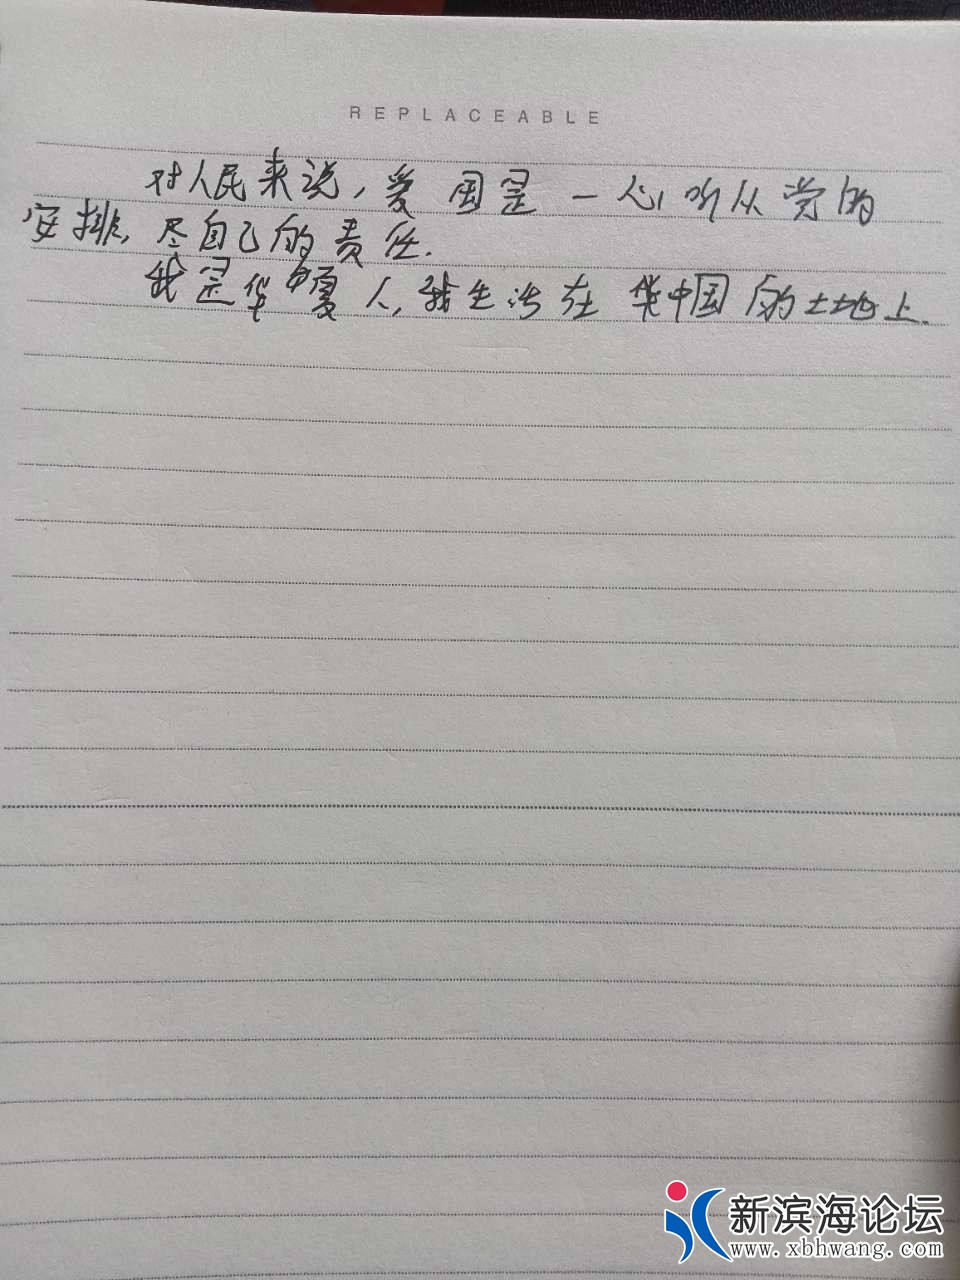 REPLACEABLE
对人民来说，爱国是一心听从党的
安排，尽自己的责任.
我是华中夏人，我生活在华中国的土地上.
新滨海论坛
www.xbhwang.com